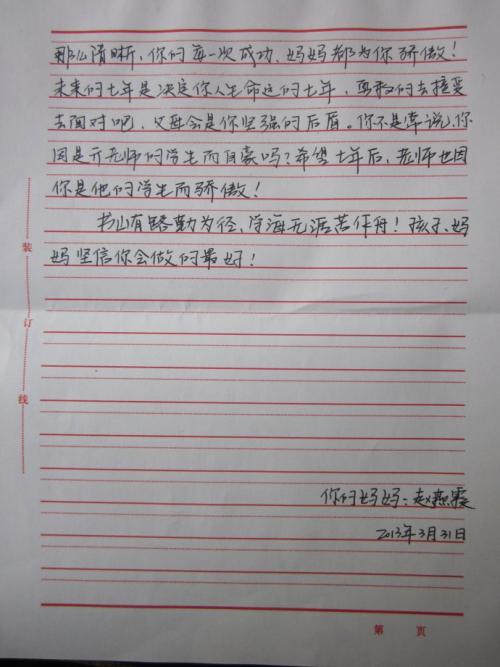 那么清晰，你的每一次成功，妈妈都为你骄傲！
未来的七年是决定你人生命运的七年，勇敢的去接受
去面对吧，父母会是你坚强的后盾。你不是常说，你
因是亓老师的学生而自豪吗？希望七年后，老师也因
你是他的学生而骄傲！
书山有路勤为径，学海无涯苦作舟！孩子，妈
妈坚信你会做的最好！
装
订
线
你的妈妈：赵燕霞
2013年3月31日
第 页